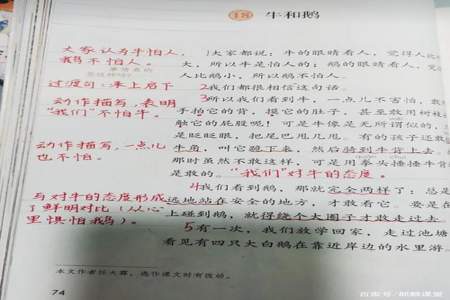 18 牛和鹅
大家认为牛怕人,
鹅不怕人。
1大家都说:牛的眼睛看人,觉得人比
大,所以牛是怕人的;鹅的眼睛看人,觉
人比鹅小,所以鹅不怕人。
过渡句:承上启下
2我们都很相信这句话。
动作描写,表明
“我们”不怕牛。
3所以我们看到牛,一点儿不害怕,敢
手拍它的背,摸它的肚子,甚至敢用树枝
触它的屁股呢!可是牛像是无所谓似的,
是眨眨眼,把尾巴甩几甩。有的孩子还敢
动作描写,一点儿
也不怕。
牛角,叫它跪下来,然后骑到牛背上去,
那时虽然不敢这样,可是用拳头捶捶牛背
是敢的。
“我们”对牛的态度
与对牛的态度形成
了鲜明对比(从心
里惧怕鹅)。
4我们看到鹅,那就完全两样了:总是
远地站在安全的地方,才敢看它。要是在
上碰到鹅,就得绕个大圈子才敢走过去
5有一次,我们放学回家,走过池塘
看见有四只大白鹅在靠近岸边的水里游
本文作者任大霖,选作课文时有改动。
74